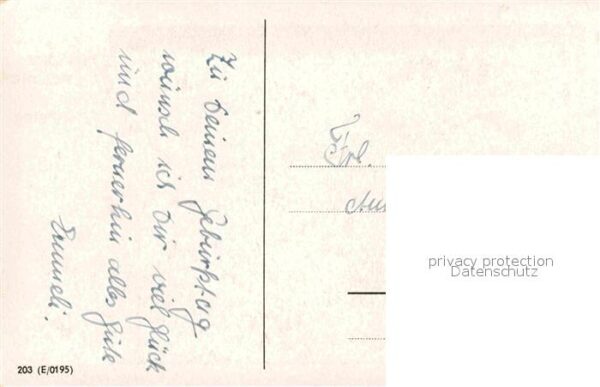 Zu Deinem Geburtstag
wünsch ich Dir viel Glück
und fernerhin alles Gute
Emmeli.
Frl.
privacy protection
Datenschutz
203 (E/0195)